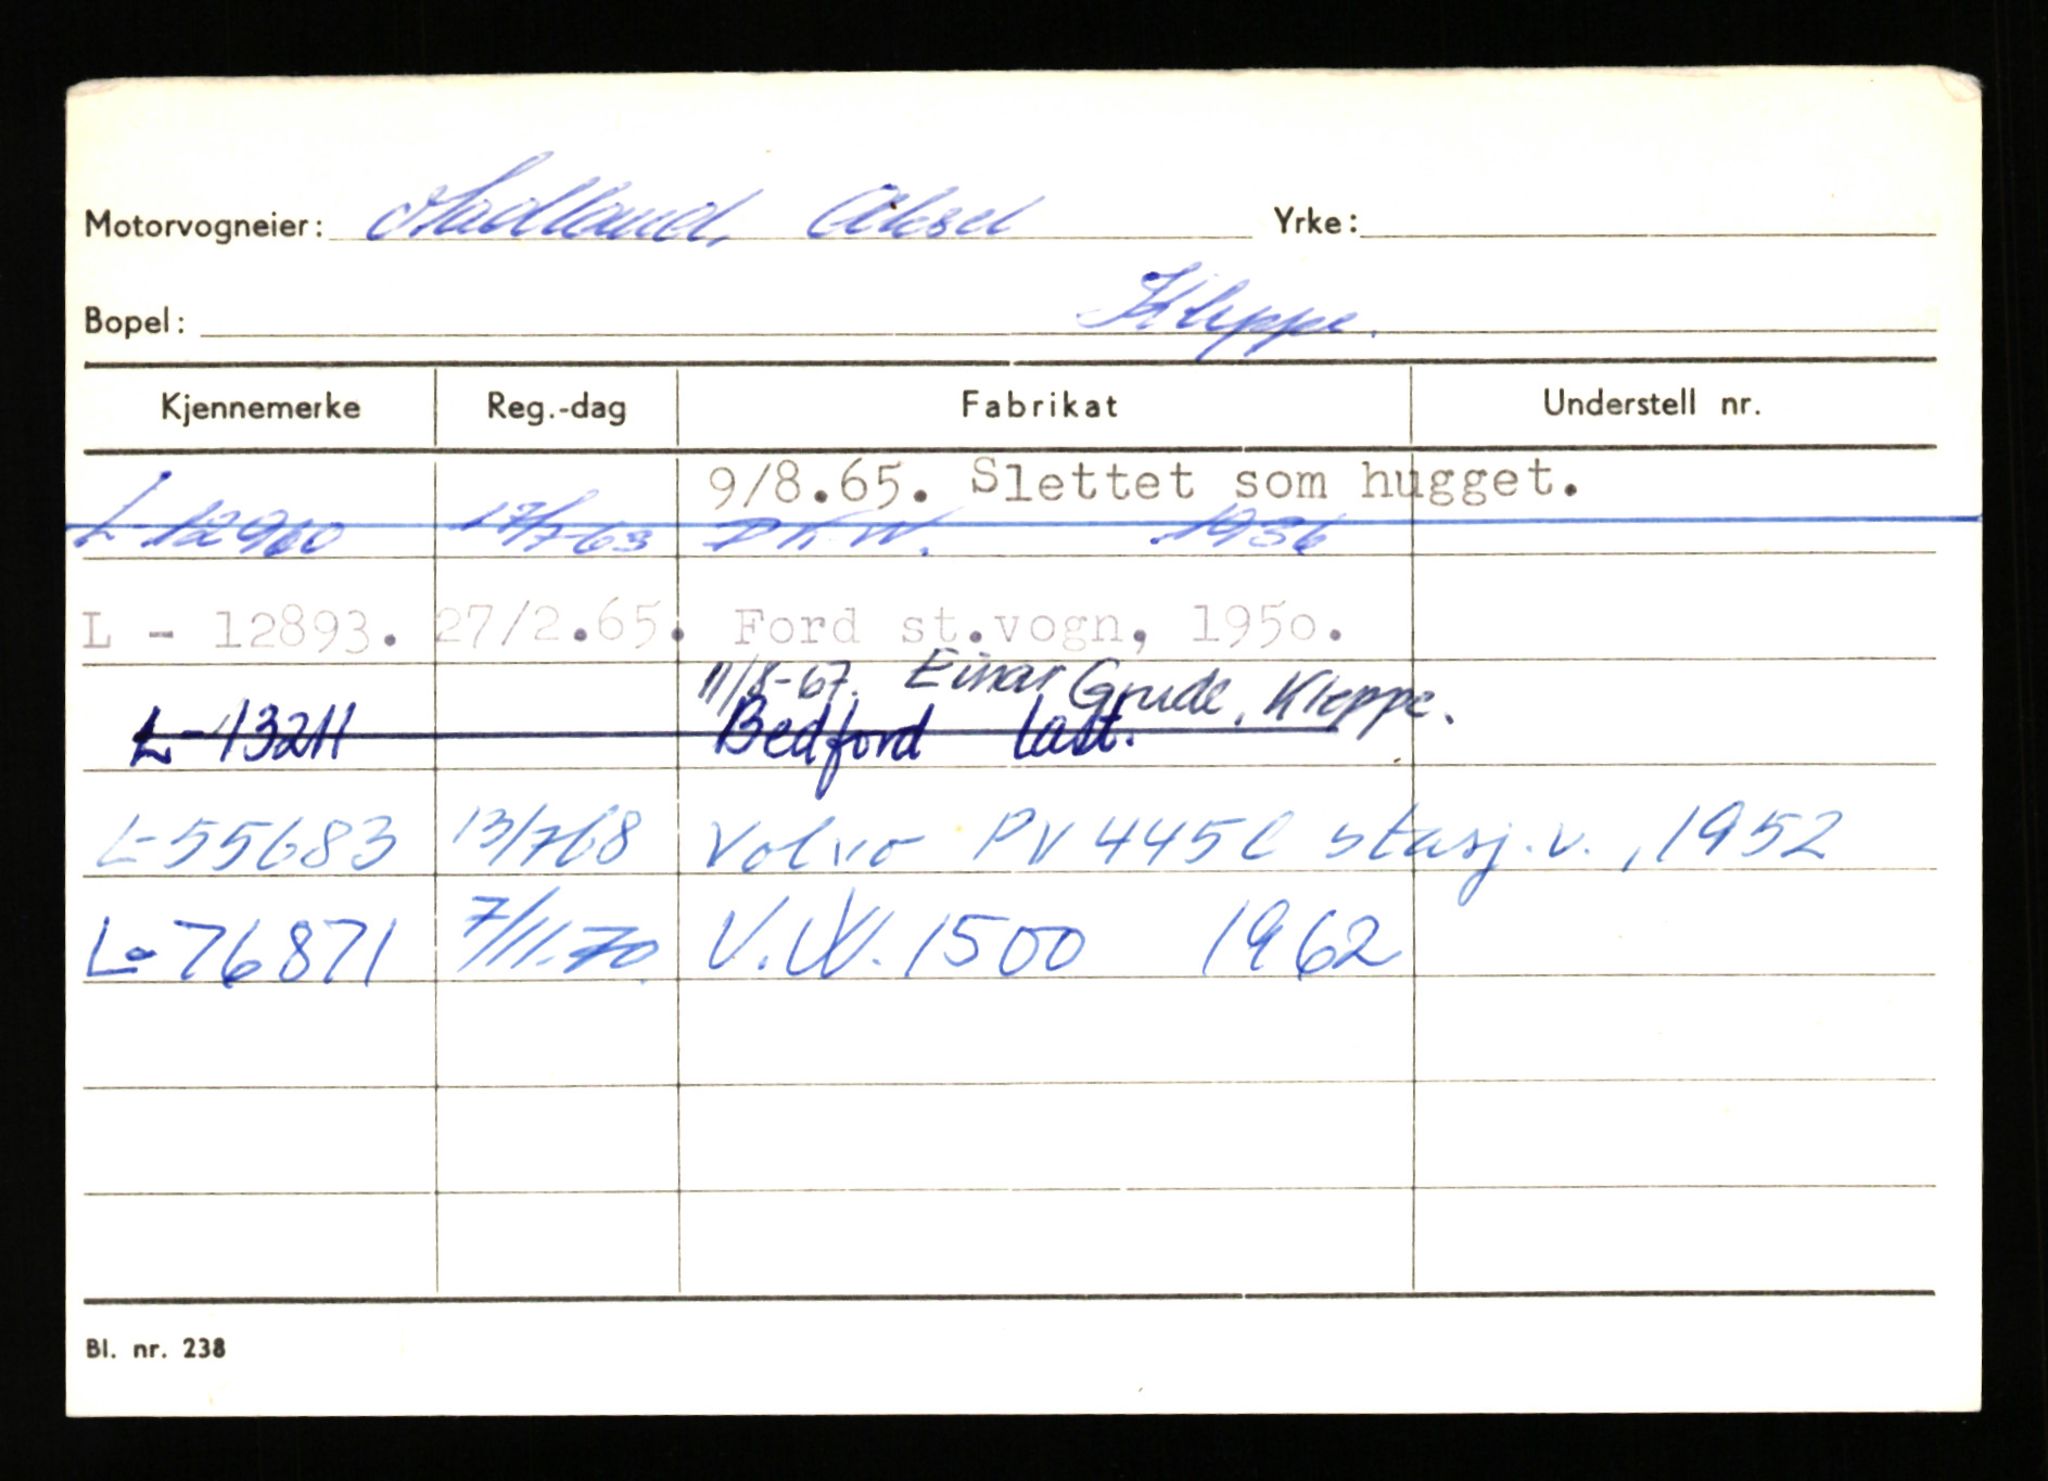 Motorvogneier: Madland, Aksel Yrke:
Bopel: Kleppe.
Kjennemerke Reg.-dag Fabrikat Understell nr.
9/8.65. Slettet som hugget.
L-12960 17/7-63 DKW. 1936
L - 12893. 27/2.65. Ford st.vogn, 1950.
11/8-67. Einar Grude, Kleppe.
L-13211 Bedford last.
L-55683 13/768 Volvo PV 445 l stasj.v., 1952
L-76871 7/11.70. V.W. 1500 1962
Bl. nr. 238